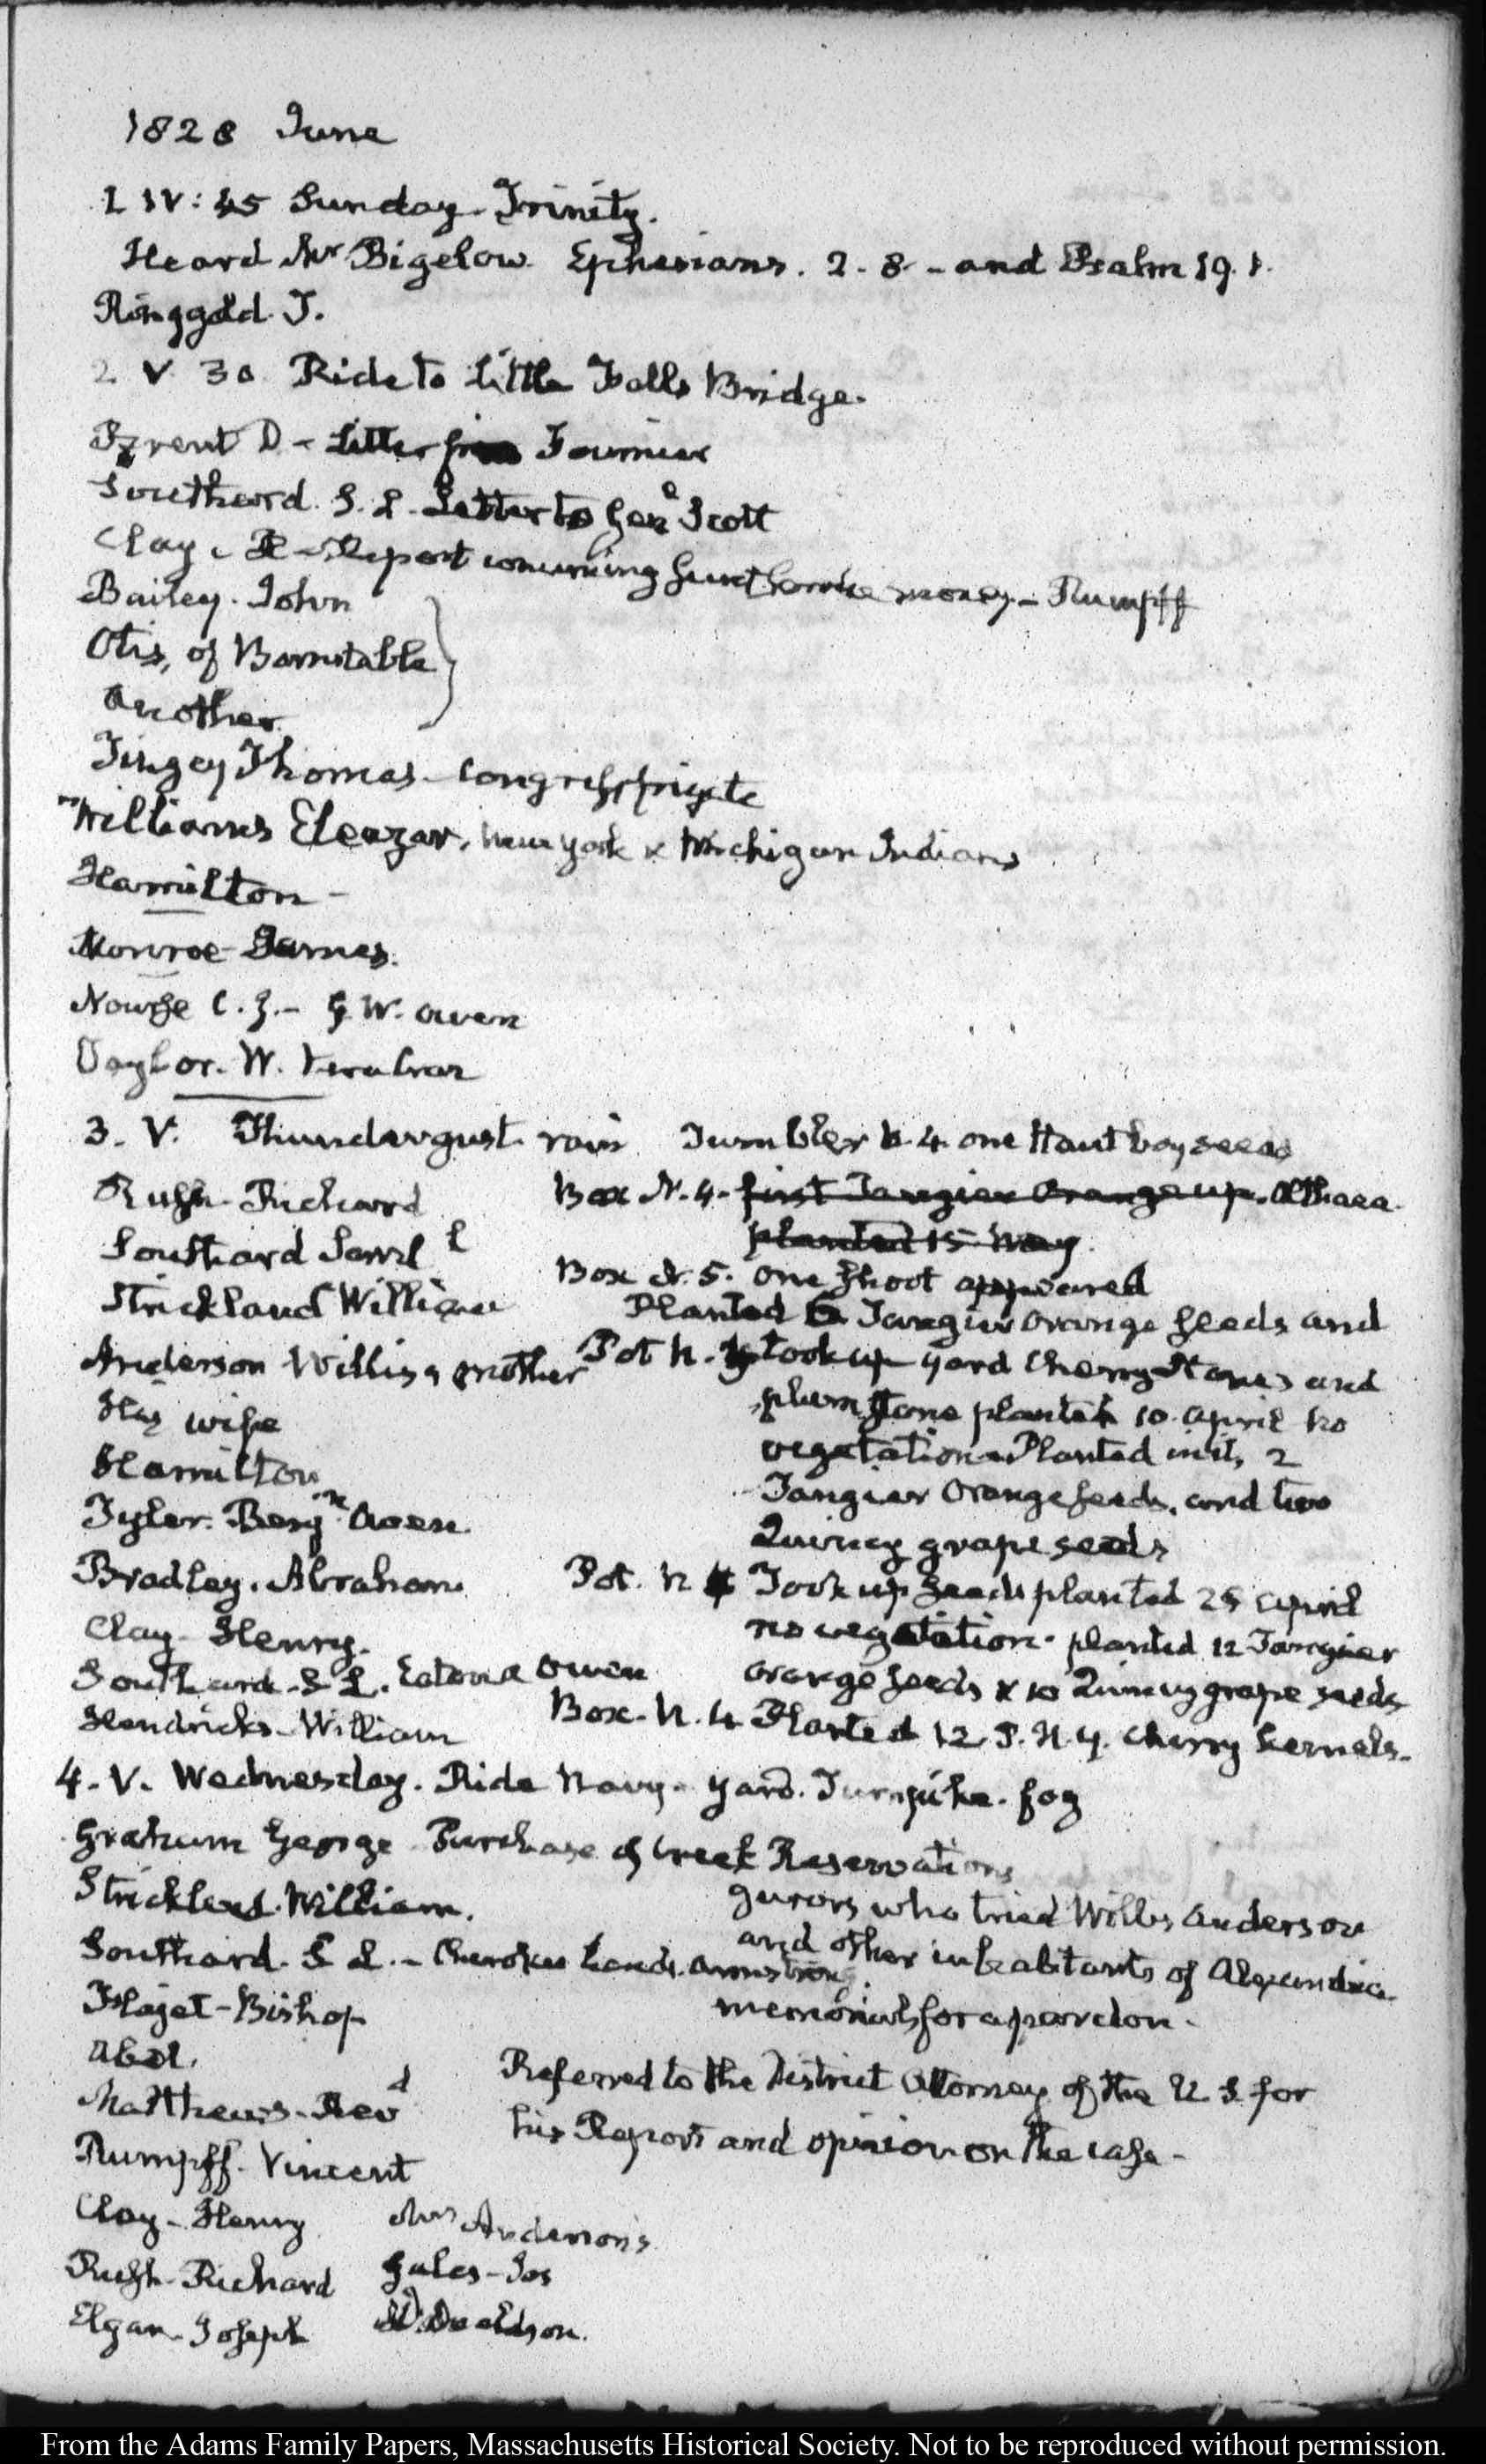 1828 June
1 IV: 45 Sunday. Trinity.
Heard Mr Bigelow. Ephesians. 2. 8. - and Psalm 19. 1.
Ringgold. T.
2 V 30 Ride to Little Falls Bridge.
Brent D - Letter from Fournier
Southard. S. L. Letter to Genl Scott
Clay. Report concerning money - Rumpff
Bailey. John
Otis, of Barnstable
another.
Tingey Thomas - Congress frigate
Williams Eleazar, New York & Michigan Indians
Hamilton -
Monroe James.
Nourse C. J. - G. W. Owen
Taylor. W. Vera Cruz
3. V. Thundergust. rain Tumbler N. 4. one Hautboy seeds
Rush - Richard
Box N. 4. first Tangier Orange up. Althaea.
planted 15. May.
Southard Saml L
Box N. 5. One shoot appeared
Strickland William
Planted 6 Tangier Orange seeds and
Anderson Willis's mother
Pot N. took up yard Cherry Stones and
plum stone planted 10. April no
His wife
vegetation. Planted in it, 2
Hamilton
Tangier Orange seeds, and two
Tyler. Benjn Owen.
Quincy grape seeds
Bradley. Abraham.
Pot. N 4 Took up seeds planted 25 April
Clay - Henry.
no vegetation. planted 12 Tangier
Southard. S L. Eaton & Owen
Orange seeds & 10 Quincy grape seeds
Hendricks - William
Box. N. 4 Planted 12 P. N. Y. Cherry kernels.
4. V. Wednesday. Ride Navy-yard. Turnpike. fog
Graham George Purchase of Creek Reservations
Strickland William.
Jurors who tried Willis Anderson
and other inhabitants of Alexandria
Southard. S L. - Cherokee Lands. Armstrong.
memorials for a pardon.
Flaget - Bishop
Abel.
Referred to the District Attorney of the U. S. for
Matthews - Revd
his Report and opinion on the case -
Rumpff. Vincent
Clay - Henry Mrs Anderson's
Rush - Richard Gales - Jos
Elgar - Joseph
From the Adams Family Papers, Massachusetts Historical Society. Not to be reproduced without permission.